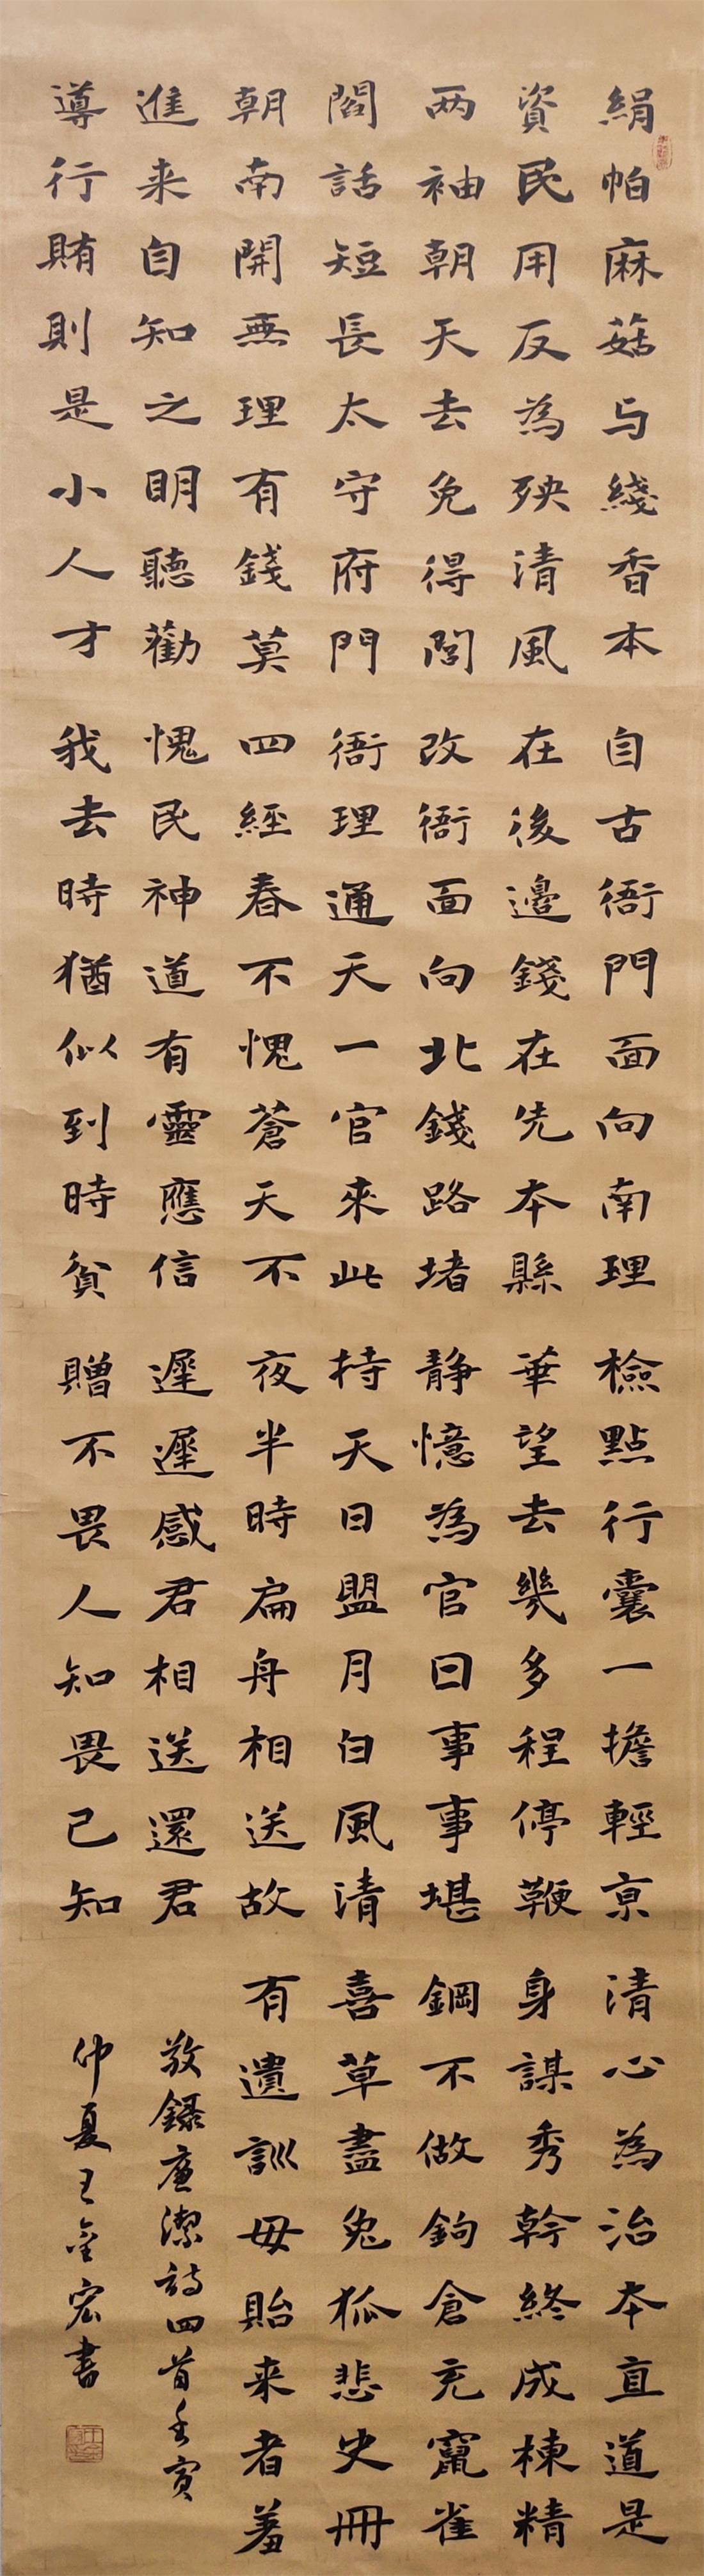 絹帕麻菇与綫香本
資民用反為殃清風
两袖朝天去免得閭
閻話短長太守府門
朝南開無理有錢莫
進来自知之明聽勸
導行賄則是小人才
自古衙門面向南理
在後邊錢在先本縣
改衙面向北錢路堵
衙理通天一官來此
四經春不愧蒼天不
愧民神道有靈應信
我去時猶似到時貧
檢點行囊一擔輕京
華望去幾多程停鞭
静憶為官日事事堪
持天日盟月白風清
夜半時扁舟相送故
遲遲感君相送還君
贈不畏人知畏己知
清心為治本直道是
身謀秀幹終成棟精
鋼不做鉤倉充鼠雀
喜草盡兔狐悲史冊
有遺訓毋貽来者羞
敬錄廉潔詩四首壬寅
仲夏王金宏書